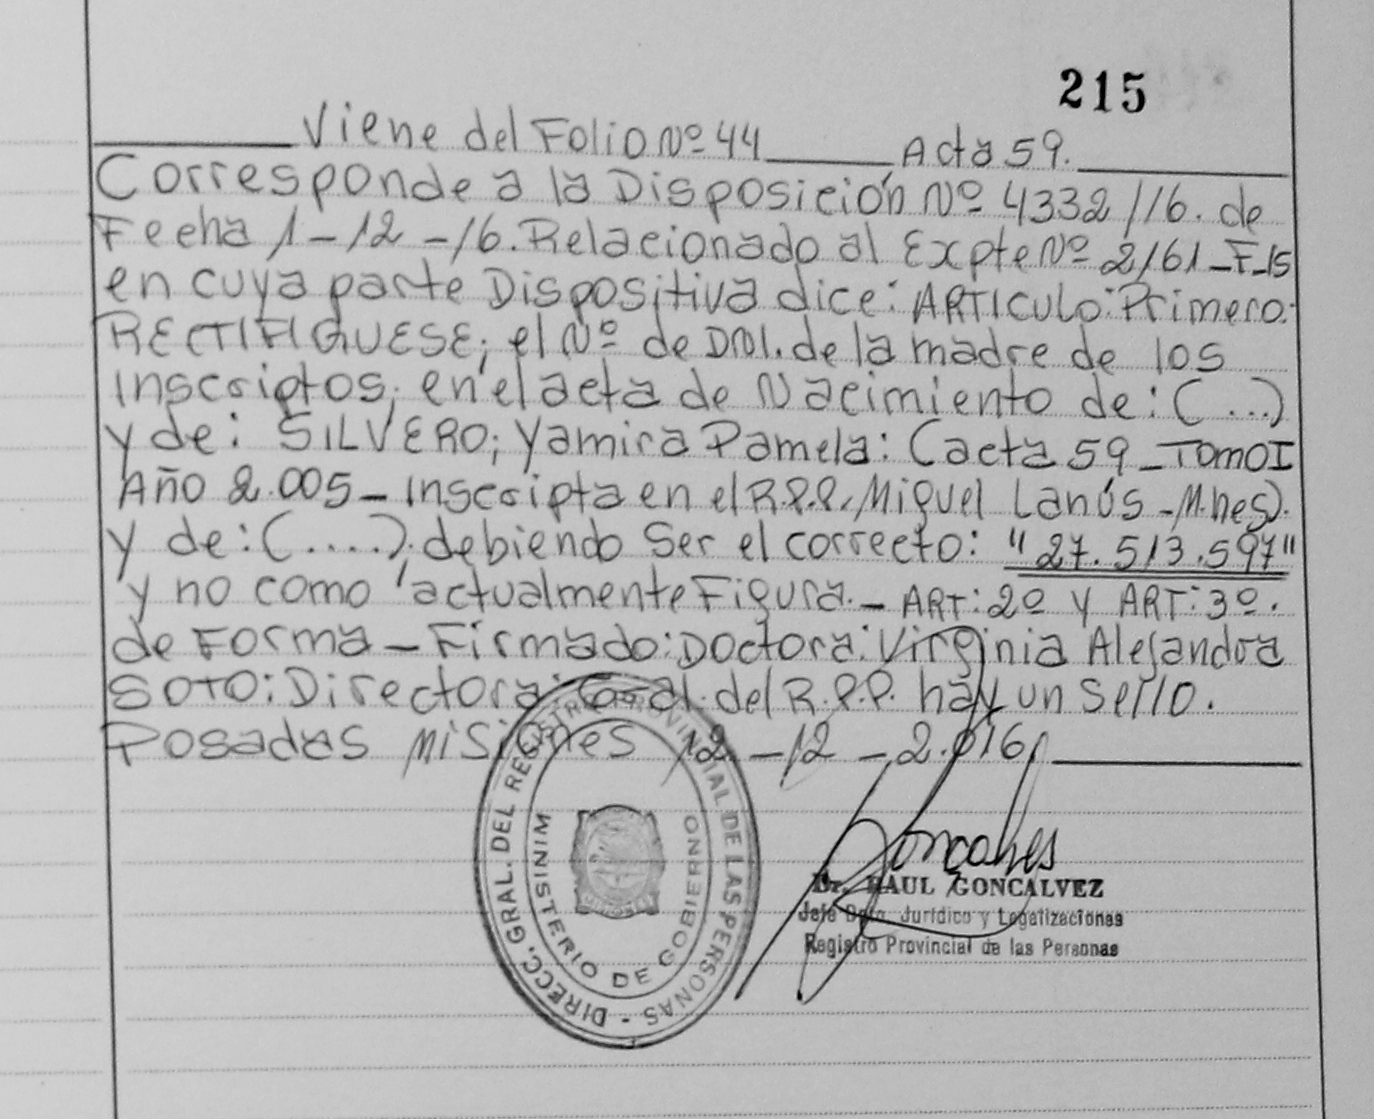 215
Viene del Folio Nº 44 Acta 59.
Corresponde a la Disposición Nº 4332/16. de
Fecha 1-12-16. Relacionado al Expte Nº 2161-F-15
en cuya parte Dispositiva dice: ARTICULO: Primero:
RECTIFIQUESE; el Nº de DNI. de la madre de los
Inscriptos; en el acta de Nacimiento de: (...)
y de: SILVERO; Yamira Pamela: (acta 59 - TOMO I
Año 2.005 - Inscripta en el R.P.P. Miguel Lanús - M.nes).
y de: (....). debiendo Ser el correcto: "27.513.597"
y no como actualmente Figura. - ART: 2º y ART: 3º.
de Forma - Firmado: Doctora: Virginia Alejandra
SOTO: Directora: Gral. del R.P.P. hay un Sello.
Posadas Misiones 12 - 12 - 2.016
DIRECC. GRAL. DEL REGISTRO PROVINCIAL DE LAS PERSONAS -
MINISTERIO DE GOBIERNO
Dr. RAUL GONCALVEZ
Jefe Dpto. Jurídico y Legalizaciones
Registro Provincial de las Personas